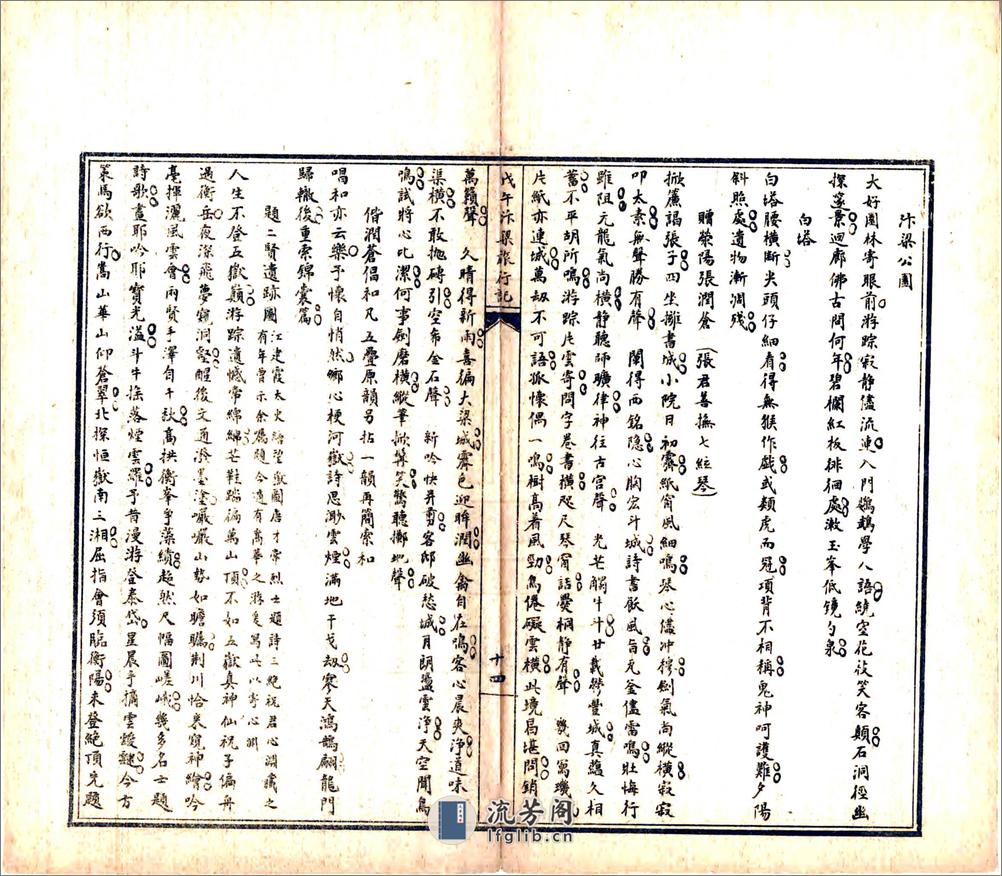 汴梁公園
大好園林寄眼前游踪寂静儘流連入門鸚鵡學人語繞空花莰笑客顛石洞徑幽
探邃景迴廊佛古問何年碧欄紅板徘徊處漱玉峯低鏡勺泉
白塔
白塔腰橫斷尖頭仔細看得無猴作戲或類虎而冠項背不相稱鬼神呵護難夕陽
斜照處遺物漸凋殘
贈滎陽張潤蒼(張君善撫七絃琴)
掀簾謁張子四坐擁書城小院日初霽紙窗風細鳴琴心儘沖穆劍氣尚縱橫寂寂
叩太素無聲勝有聲 閒得西銘隱心胸宏斗城詩書厭風旨瓦釜儘雷鳴壯悔行
雖阻元龍氣尚橫静聽師曠律神往古宮聲 光芒觸斗牛廿載斃豐城真蘊久相
蓄不平胡所鳴游踪片雲寄問字卷書橫咫尺琴甯詰爨桐静有聲 幾回寫璣
片紙亦連城萬劫不可語孤懷偶一鳴樹高着風勁鳥倦礙雲橫此境局堪問銷
戊午汴梁旅行記
十四
萬籟聲 久晴得新雨喜徧大梁城霽色迎眸潤幽禽自在鳴客心晨爽浄道味
渠橫不敢拋磚引空希金石聲 新吟快并剪客邸破愁城月朗盪雲浄天空聞鳥
鳴試將心比潔何事劍磨橫縱筆掀髯笑驚聽擲地聲
偕潤蒼倡和凡五疊原韻另拈一韻再簡索和
唱和亦云樂予懷自悄然鄉心梗河嶽詩思渺雲煙滿地干戈劫寥天鴻鵠翩龍門
歸轍後重索錦囊篇
題二賢遺跡圖
江建霞太史繪望嶽圖唐才常烈士題詩三絶祝君心淵藏之
有年曾示余屬題今適有嵩華之游爰寫此以寄心淵
人生不登五嶽巔游踪遺憾常綿綿芒鞋踏徧萬山頂不如五嶽真神仙祝子偏舟
過衡岳夜深飛夢窺洞壑醒後文通潑墨塗巖巖山勢如瞻矚荆川恰來窺神繪吟
毫揮灑風雲會兩賢手澤自千秋高拱衡峯爭藻繢超然尺幅圖嵯峨幾多名士題
詩歌畫耶吟耶寶光溢斗牛摇落煙雲羅予昔漫游登泰岱星辰手摘雲靉靆今方
策馬欲西行嵩山華山仰蒼翠北探恒嶽南三湘屈指會須臨衡陽來登絶頂先題
流芳阁
lfglib.com